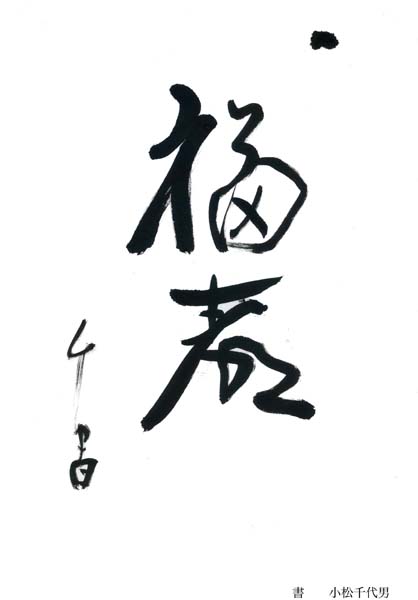 福
千書
書　小松千代男